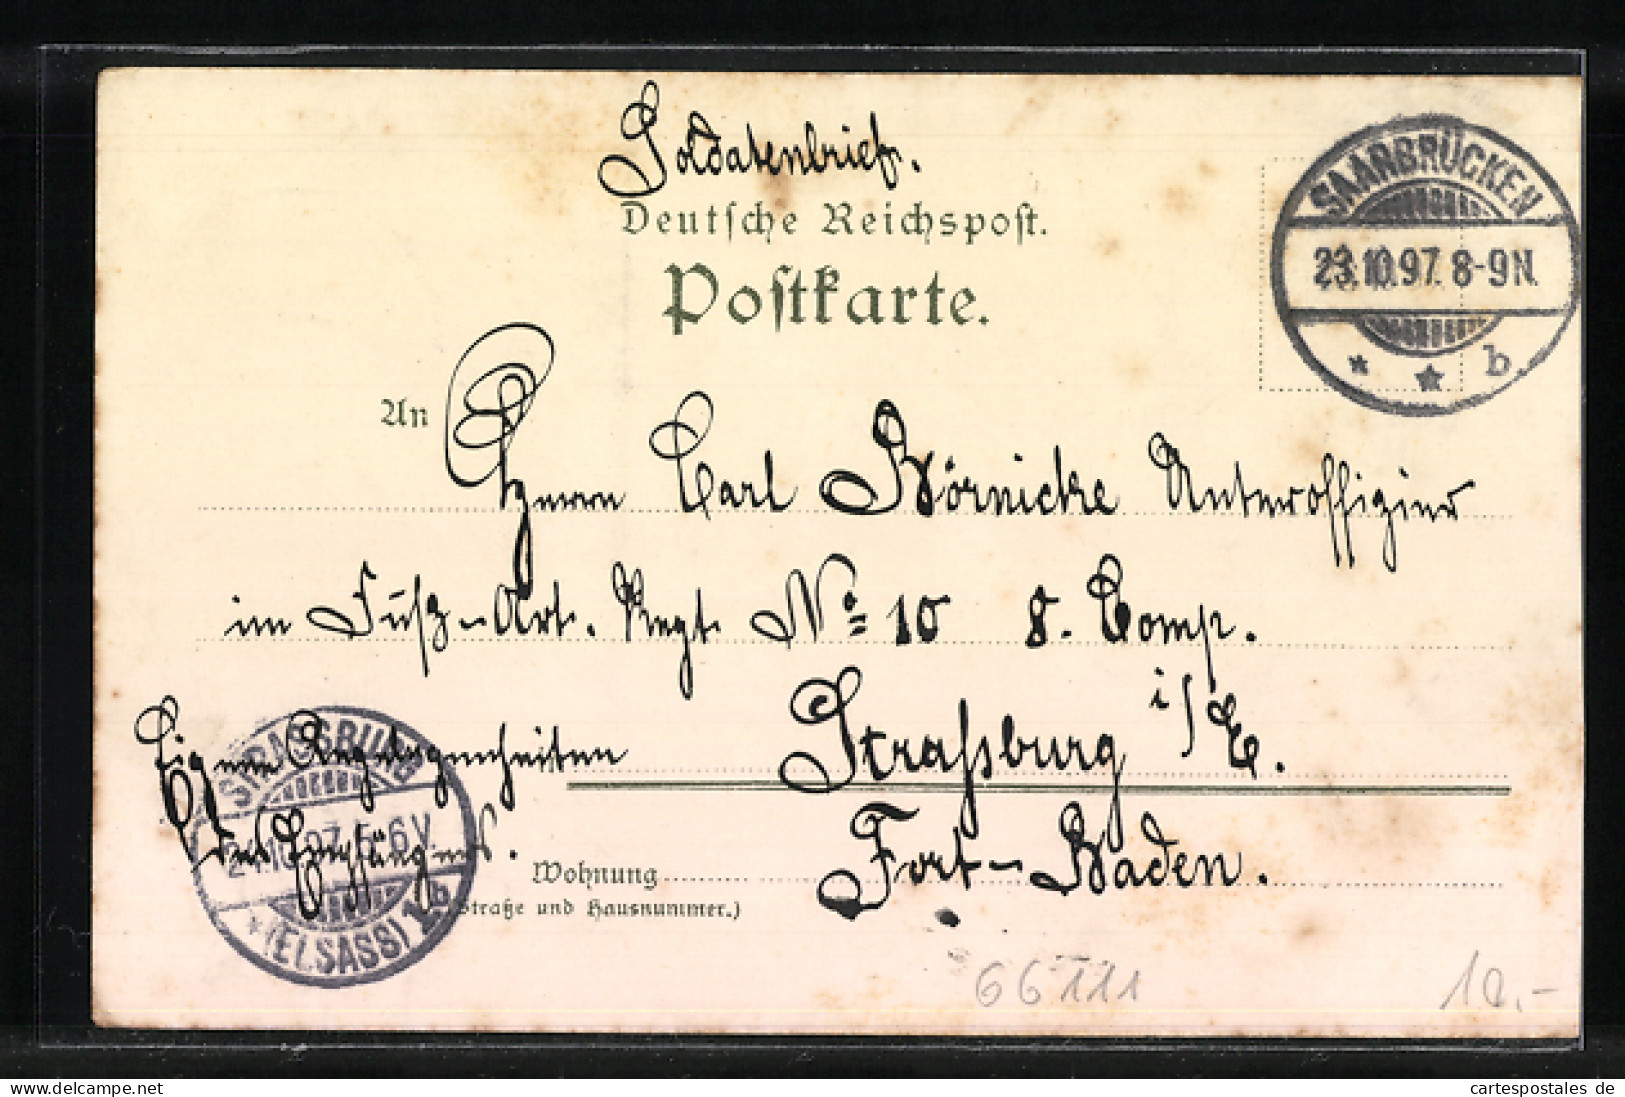 Soldatenbrief.
Deutsche Reichspost.
Postkarte.
SAARBRÜCKEN
23.10.97. 8-9N.
* * b.
An Herrn Carl Börnicke Unteroffizier
im Fuß-Art. Regt. No 10 8. Comp.
Straßburg i/E.
Eigene Angelegenheiten
des Empfängers.
Fort-Baden.
STRASSBURG
24.10.97. 5-6V.
* (ELSASS) 1 b
Wohnung
(Straße und Hausnummer.)
66111
10,-
Image copyright(s) reserved
cartespostales de